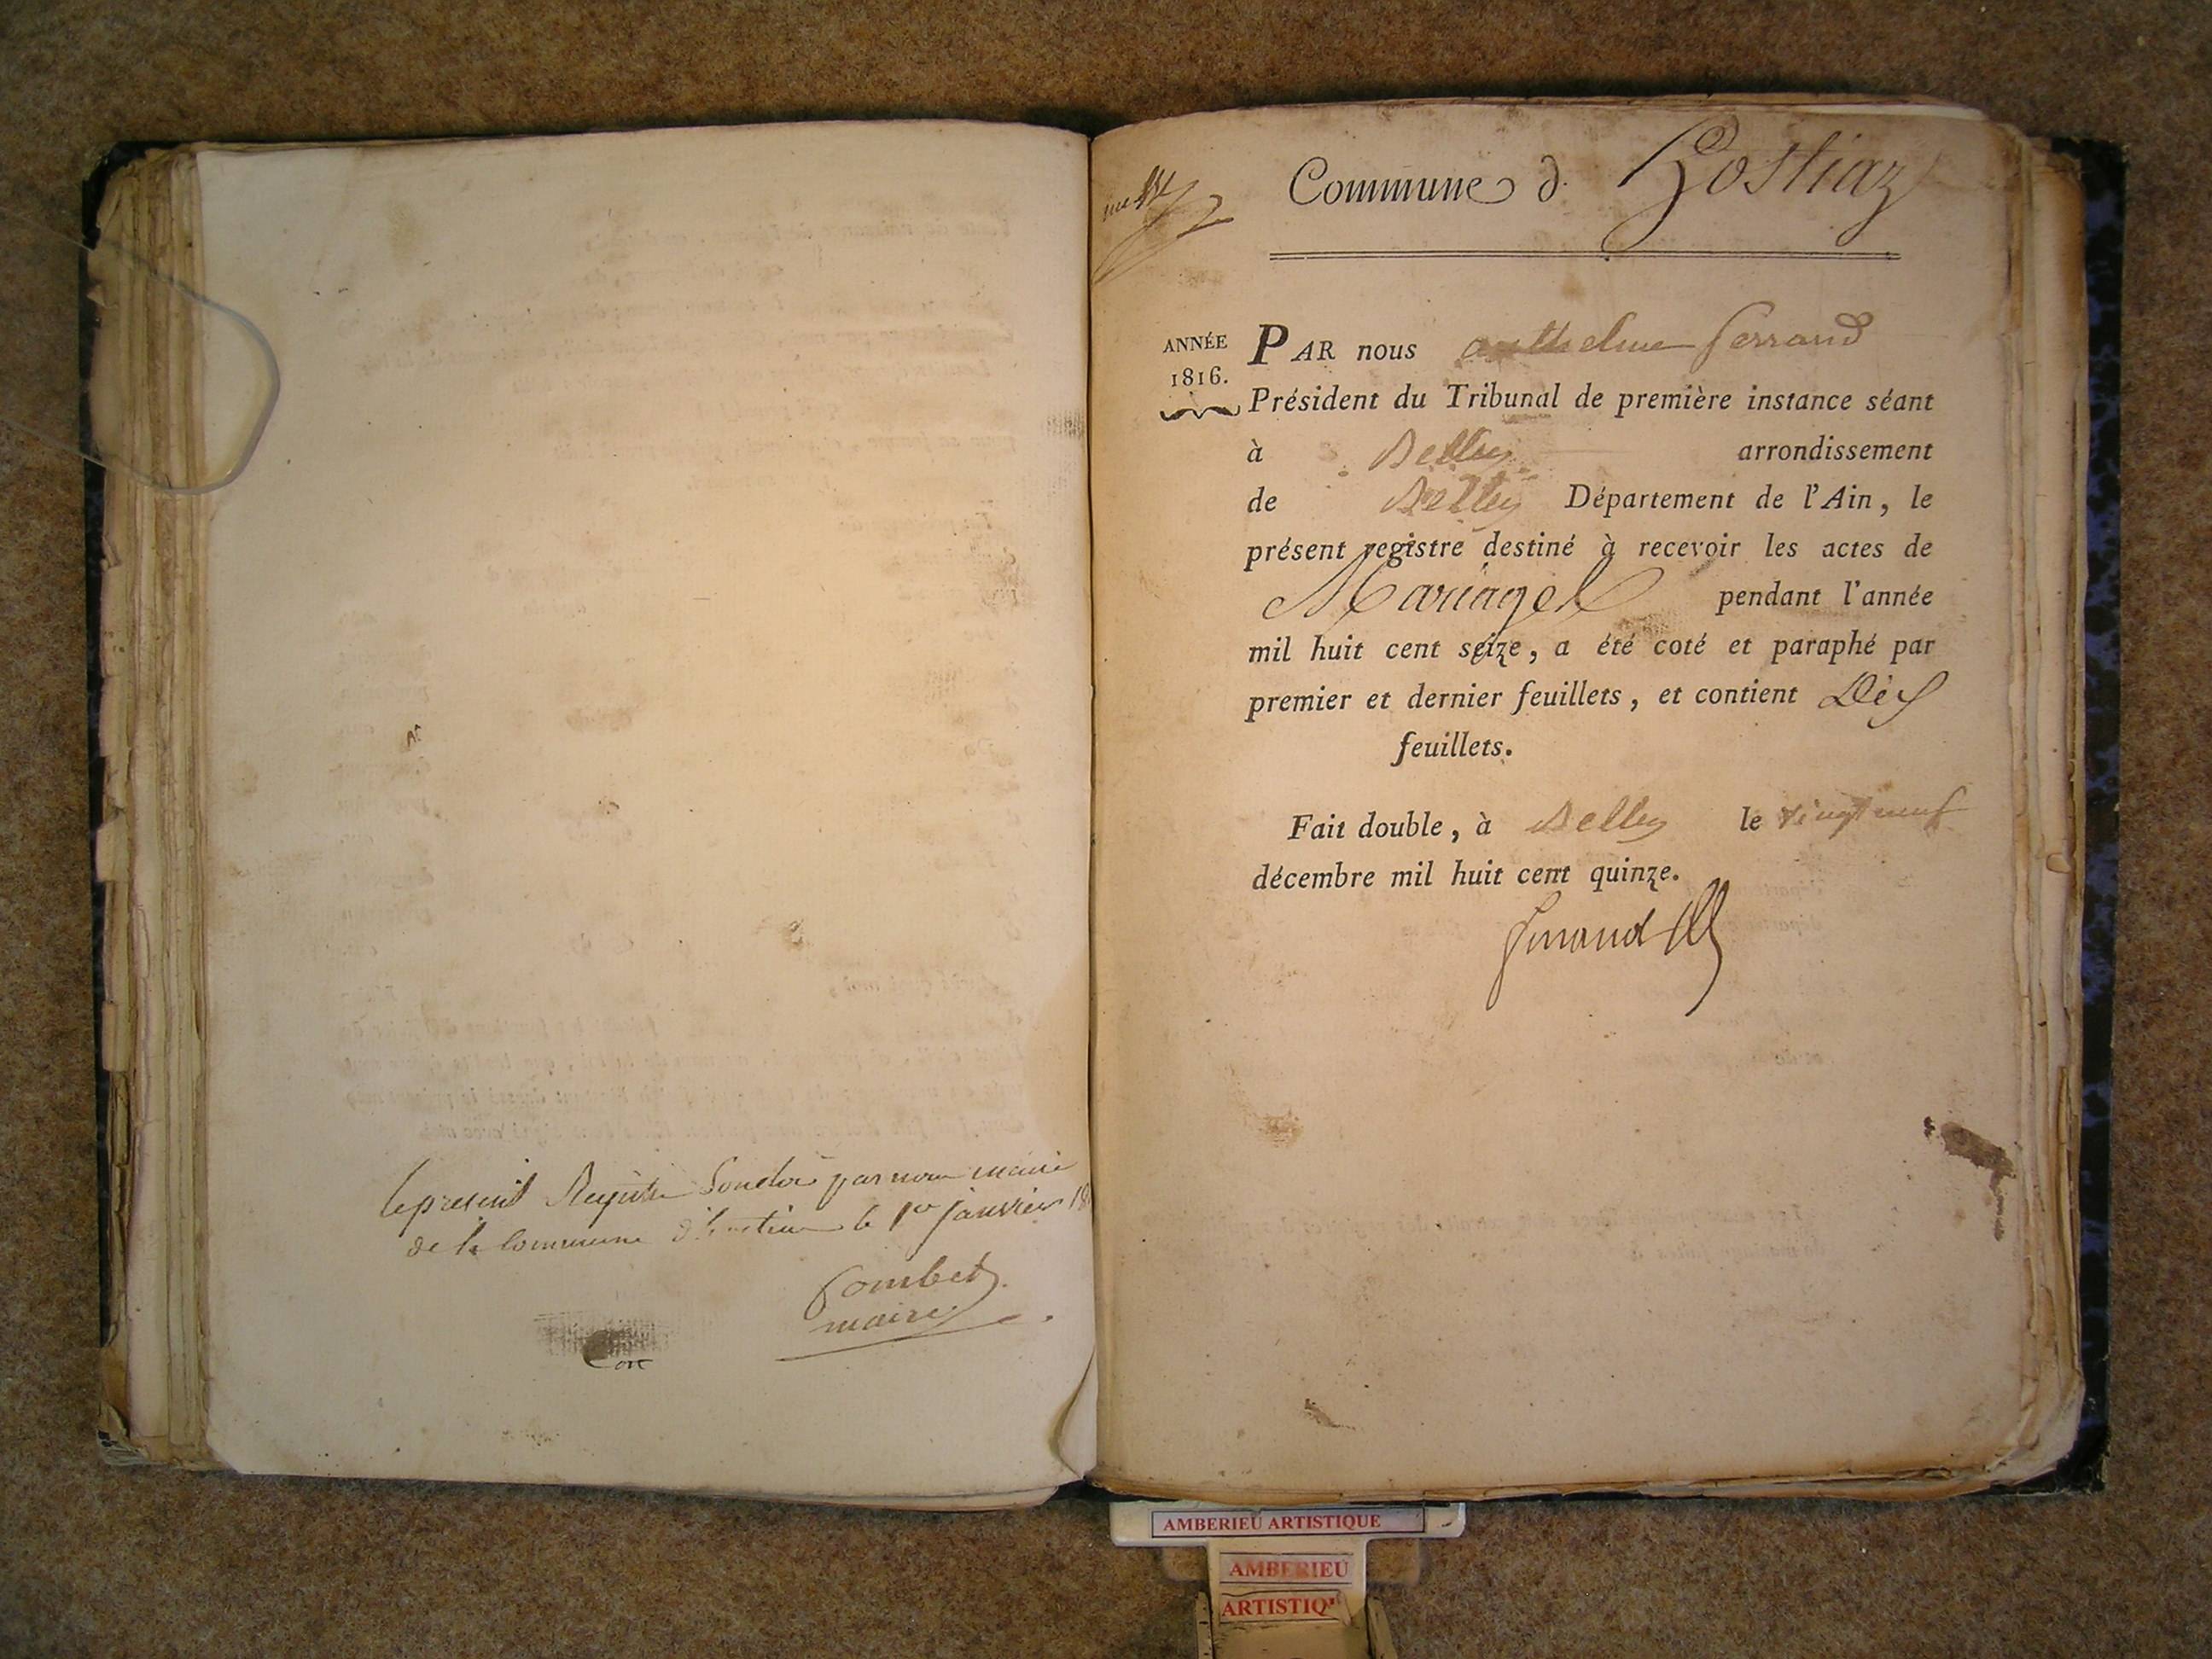 le present Registre par nous maire
de la Commune le 1er janvier 18
Combet
maire
Commune d. Hostiaz
ANNÉE
1816.
PAR nous anthelme ferrand
Président du Tribunal de première instance séant
à Belley arrondissement
de Belley Département de l'Ain, le
présent registre destiné à recevoir les actes de
Mariages pendant l'année
mil huit cent seize, a été coté et paraphé par
premier et dernier feuillets, et contient Dix
feuillets.
Fait double, à Belley le vingt neuf
décembre mil huit cent quinze.
ferrand
AMBERIEU ARTISTIQUE
AMBERIEU
ARTISTIQ